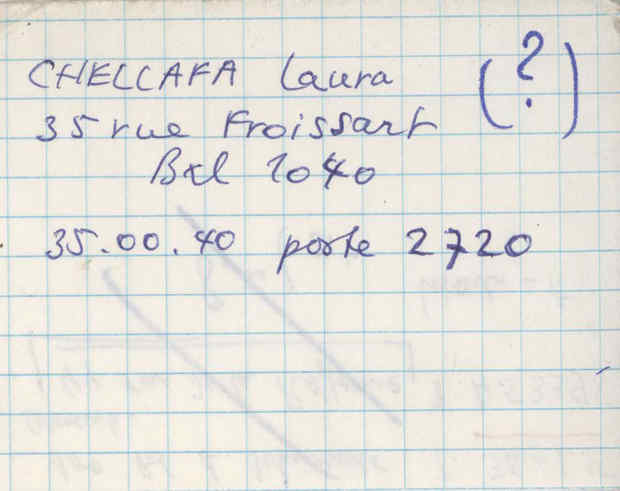 CHELLAFA Laura (?)
35 rue Froissart
Bxl 1040
35.00.40 poste 2720